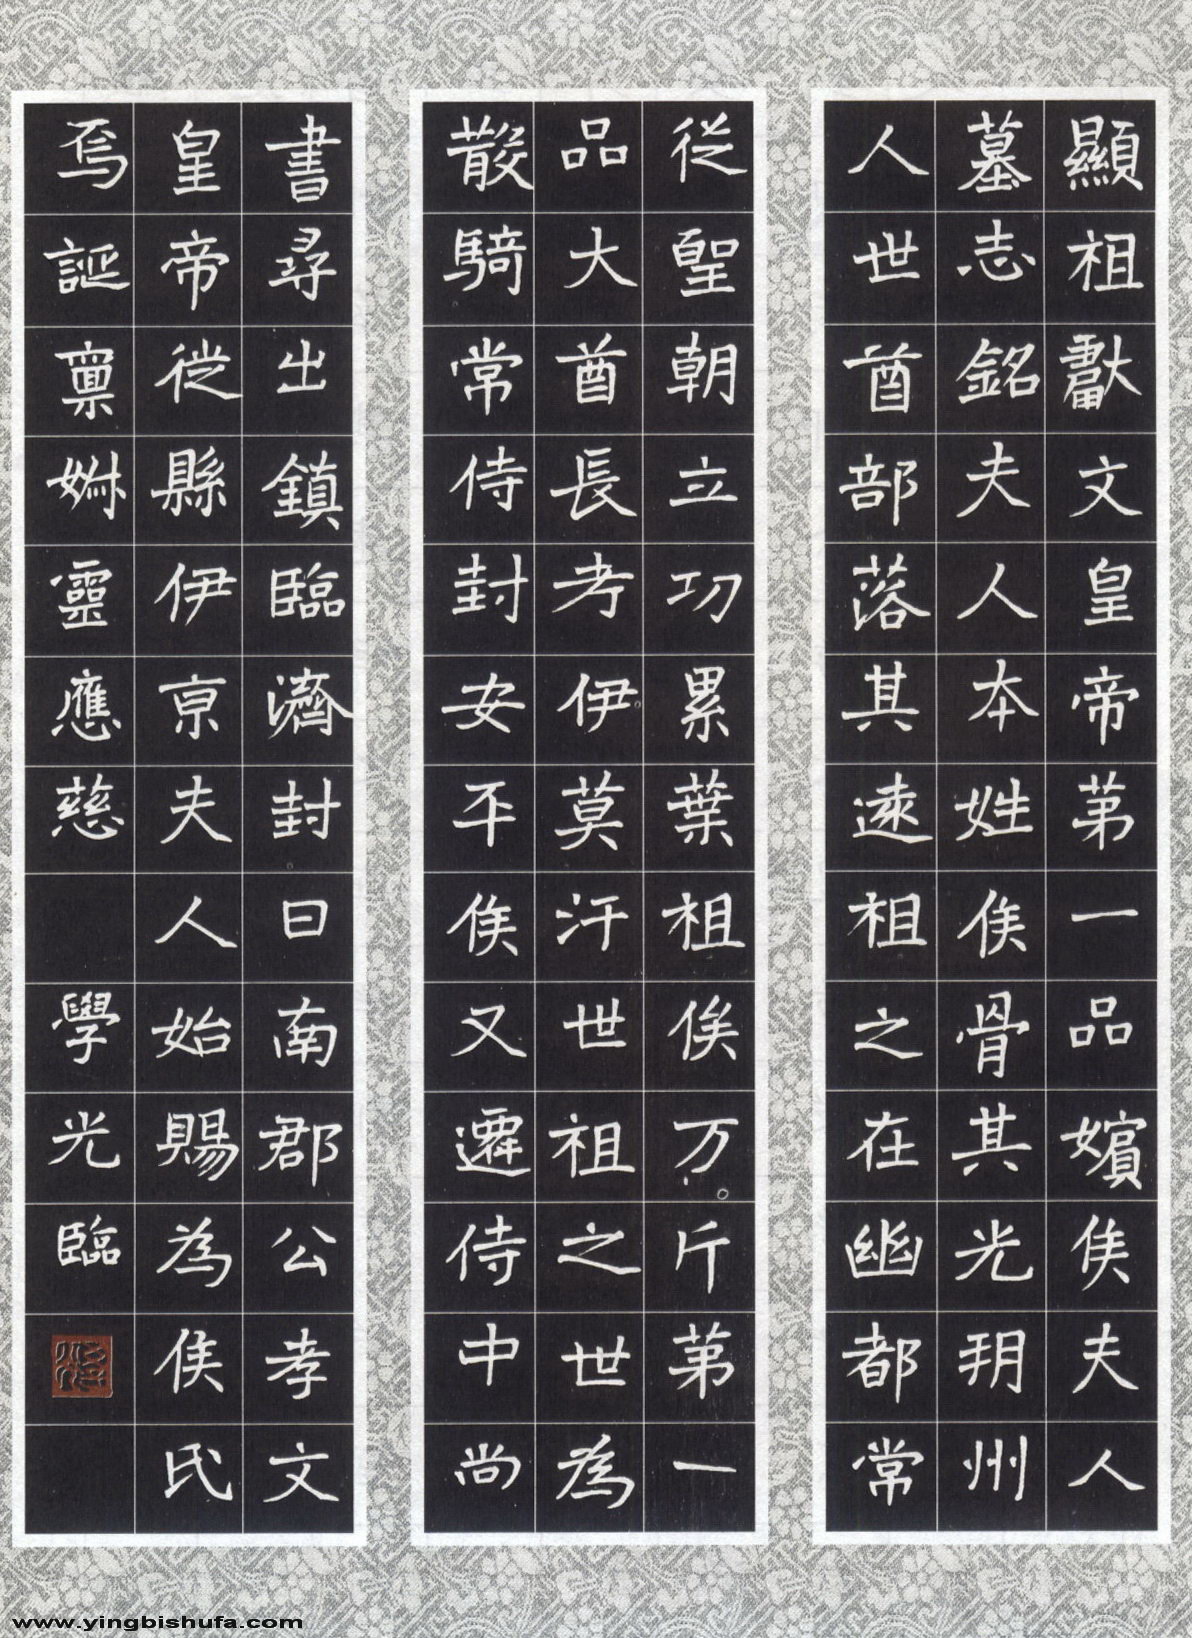 顯祖獻文皇帝第一品嬪侯夫人
墓志銘夫人本姓侯骨其先朔州
人世酋部落其遠祖之在幽都常
從聖朝立功累葉祖俟万斤第一
品大酋長考伊莫汗世祖之世為
散騎常侍封安平侯又遷侍中尚
書尋出鎮臨濟封日南郡公孝文
皇帝從縣伊京夫人始賜為侯氏
焉誕稟姉靈應慈 學光臨
www.yingbishufa.com